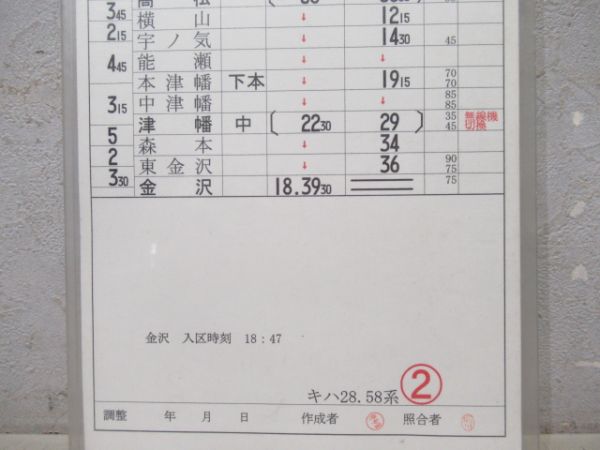 3 45 横山 ↓ 12 15
2 15 宇ノ気 ↓ 14 30 45
4 45 能瀬 ↓ ↓
本津幡 下本 ↓ 19 15 70 70
3 15 中津幡 ↓ ↓ 85 85
津幡 中 ( 22 30 29 ) 35 45 無線機切換
5 森本 ↓ 34
2 東金沢 ↓ 36 90 75
3 30 金沢 18.39 30 75
金沢 入区時刻 18:47
キハ28.58系 ②
調整 年 月 日 作成者 照合者